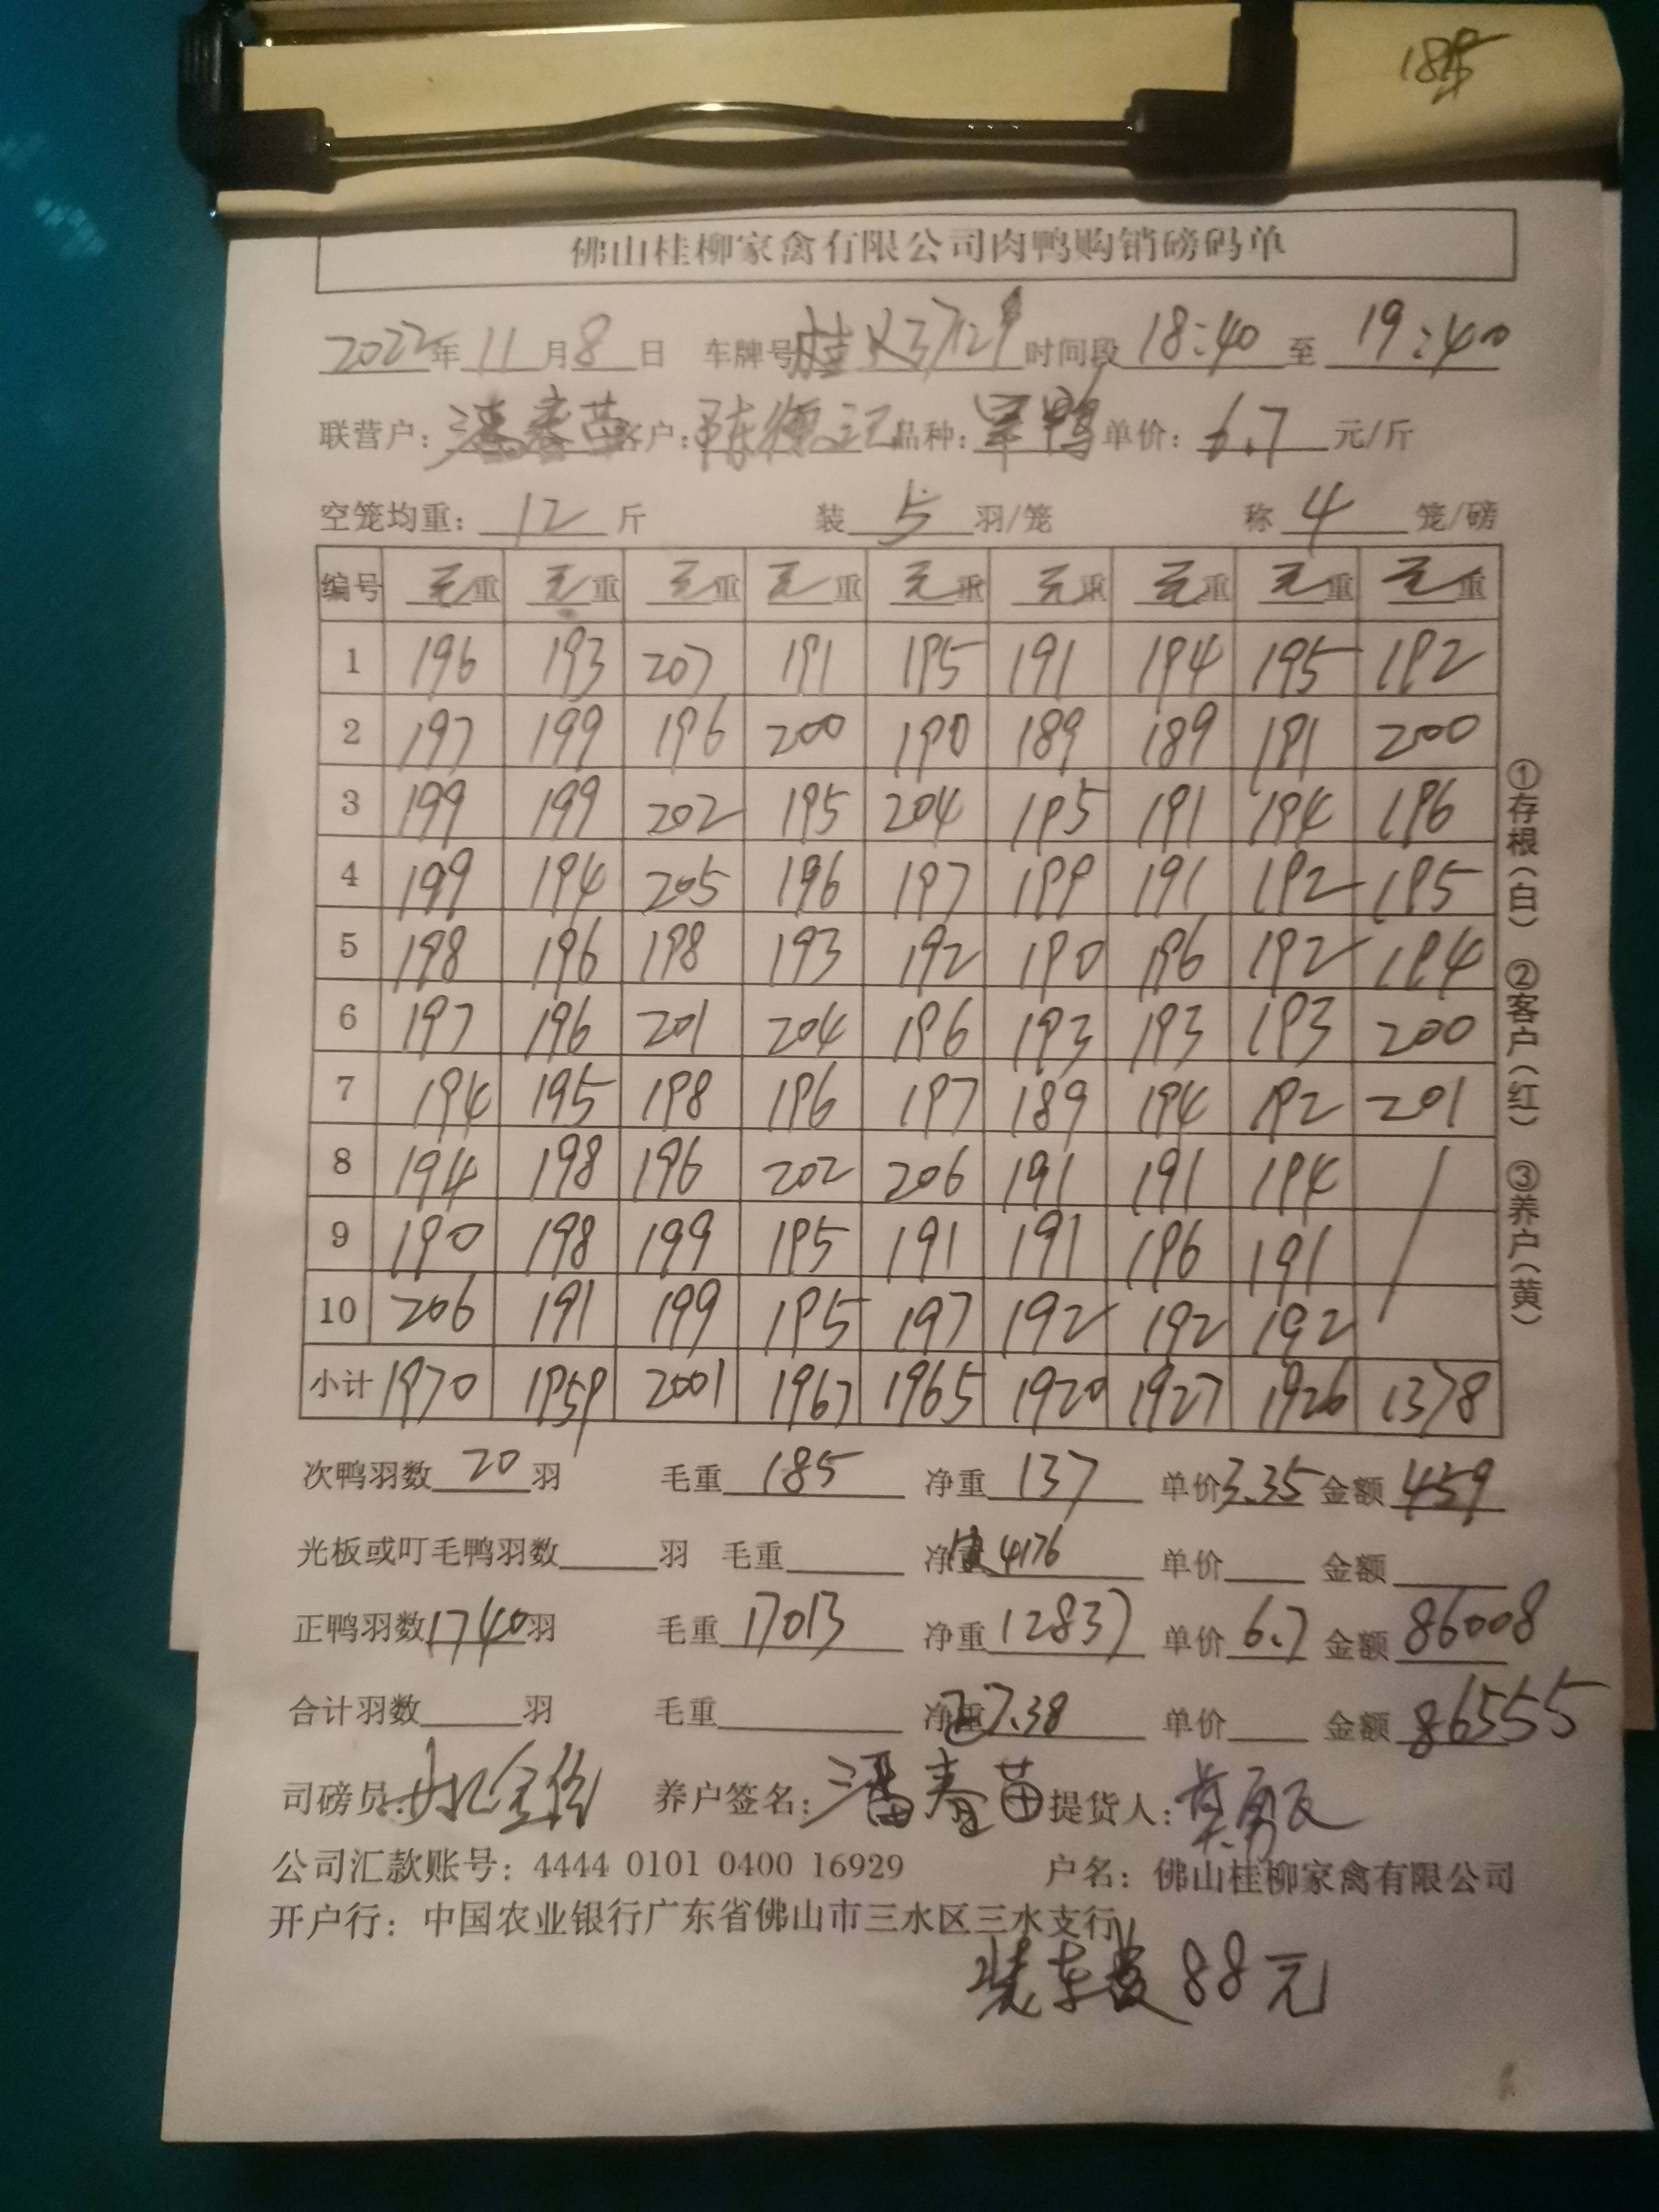 185
佛山桂柳家禽有限公司肉鸭购销磅码单
2022年 11月8日 车牌号桂 时间段 18:40 至 19:40
联营户:潘春苗 客户:陈 记 品种: 鸭 单价:6.7 元/斤
空笼均重:12 斤 装 5 羽/笼 称 4 笼/磅
编号 毛重 毛重 毛重 毛重 毛重 毛重 毛重 毛重 毛重
1 196 193 207 191 195 191 194 195 192
2 197 199 196 200 190 189 189 191 200
3 199 199 202 195 204 195 191 194 196
4 199 194 205 196 197 199 191 192 195
5 198 196 198 193 192 190 196 192 194
6 197 196 201 204 196 193 193 193 200
7 194 195 198 196 197 189 194 192 201
8 194 198 196 202 206 191 191 194
9 190 198 199 195 191 191 196 191
10 206 191 199 195 197 192 192 192
小计 1970 1959 2001 1967 1965 1920 1927 1926 1378
次鸭羽数 20 羽 毛重 185 净重 137 单价3.35 金额 459
光板或叮毛鸭羽数 羽 毛重 净重 4176 单价 金额
正鸭羽数1740羽 毛重 17013 净重 12837 单价 6.7 金额 86008
合计羽数 羽 毛重 净重 7.38 单价 金额 86555
司磅员: 养户签名:潘春苗 提货人:
公司汇款账号:4444 0101 0400 16929 户名:佛山桂柳家禽有限公司
开户行:中国农业银行广东省佛山市三水区三水支行
装车费 88元
①存根(白) ②客户(红) ③养户(黄)